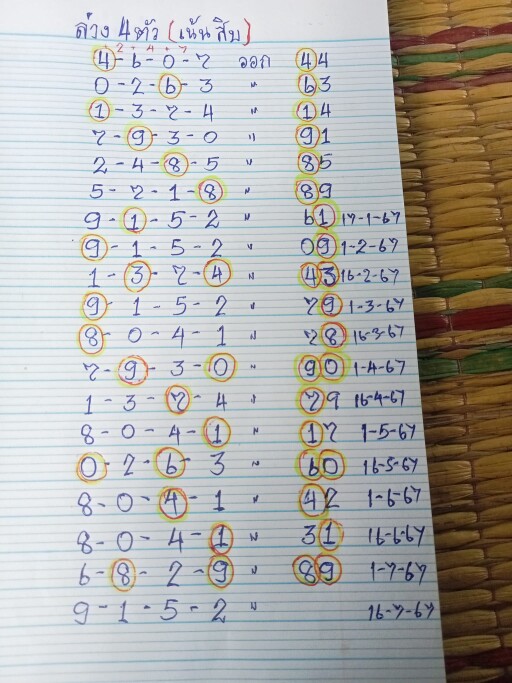 ล่าง 4 ตัว (เน้น สิบ)
4 - 6 - 0 - 7 ออก 44
0 - 2 - 6 - 3 " 63
1 - 3 - 7 - 4 " 14
7 - 9 - 3 - 0 " 91
2 - 4 - 8 - 5 " 85
5 - 7 - 1 - 8 " 89
9 - 1 - 5 - 2 " 61 17-1-67
9 - 1 - 5 - 2 " 09 1-2-67
1 - 3 - 7 - 4 " 43 16-2-67
9 - 1 - 5 - 2 " 79 1-3-67
8 - 0 - 4 - 1 " 78 16-3-67
7 - 9 - 3 - 0 " 90 1-4-67
1 - 3 - 7 - 4 " 79 16-4-67
8 - 0 - 4 - 1 " 17 1-5-67
0 - 2 - 6 - 3 " 60 16-5-67
8 - 0 - 4 - 1 " 42 1-6-67
8 - 0 - 4 - 1 " 31 16-6-67
6 - 8 - 2 - 9 " 89 1-7-67
9 - 1 - 5 - 2 " 16-7-67